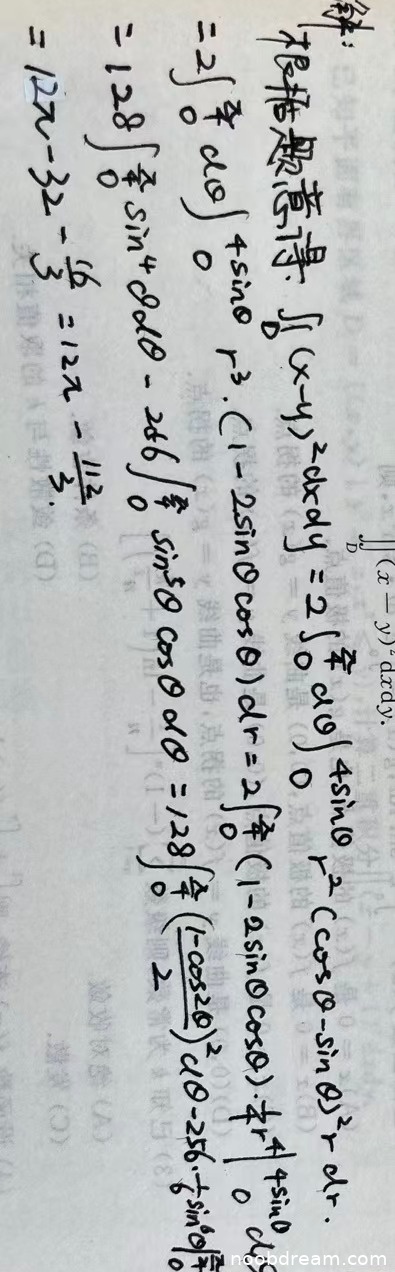 ∬_D (x − y)² dxdy.
解:
根据题意得: ∬_D (x-y)²dxdy = 2∫_0^{π/4} dθ∫_0^{4sinθ} r²(cosθ-sinθ)² r dr.
= 2∫_0^{π/4} dθ∫_0^{4sinθ} r³·(1-2sinθcosθ)dr = 2∫_0^{π/4} (1-2sinθcosθ)·¼r⁴|_0^{4sinθ} dθ
= 128∫_0^{π/4} sin⁴θdθ - 256∫_0^{π/4} sin⁵θcosθdθ = 128∫_0^{π/4} (\frac{1-cos2θ}{2})²dθ-256·\frac{1}{6}sin⁶θ|_0^{π/4}
= 12π - 32 - \frac{16}{3} = 12π - \frac{112}{3}.
noobdream.com